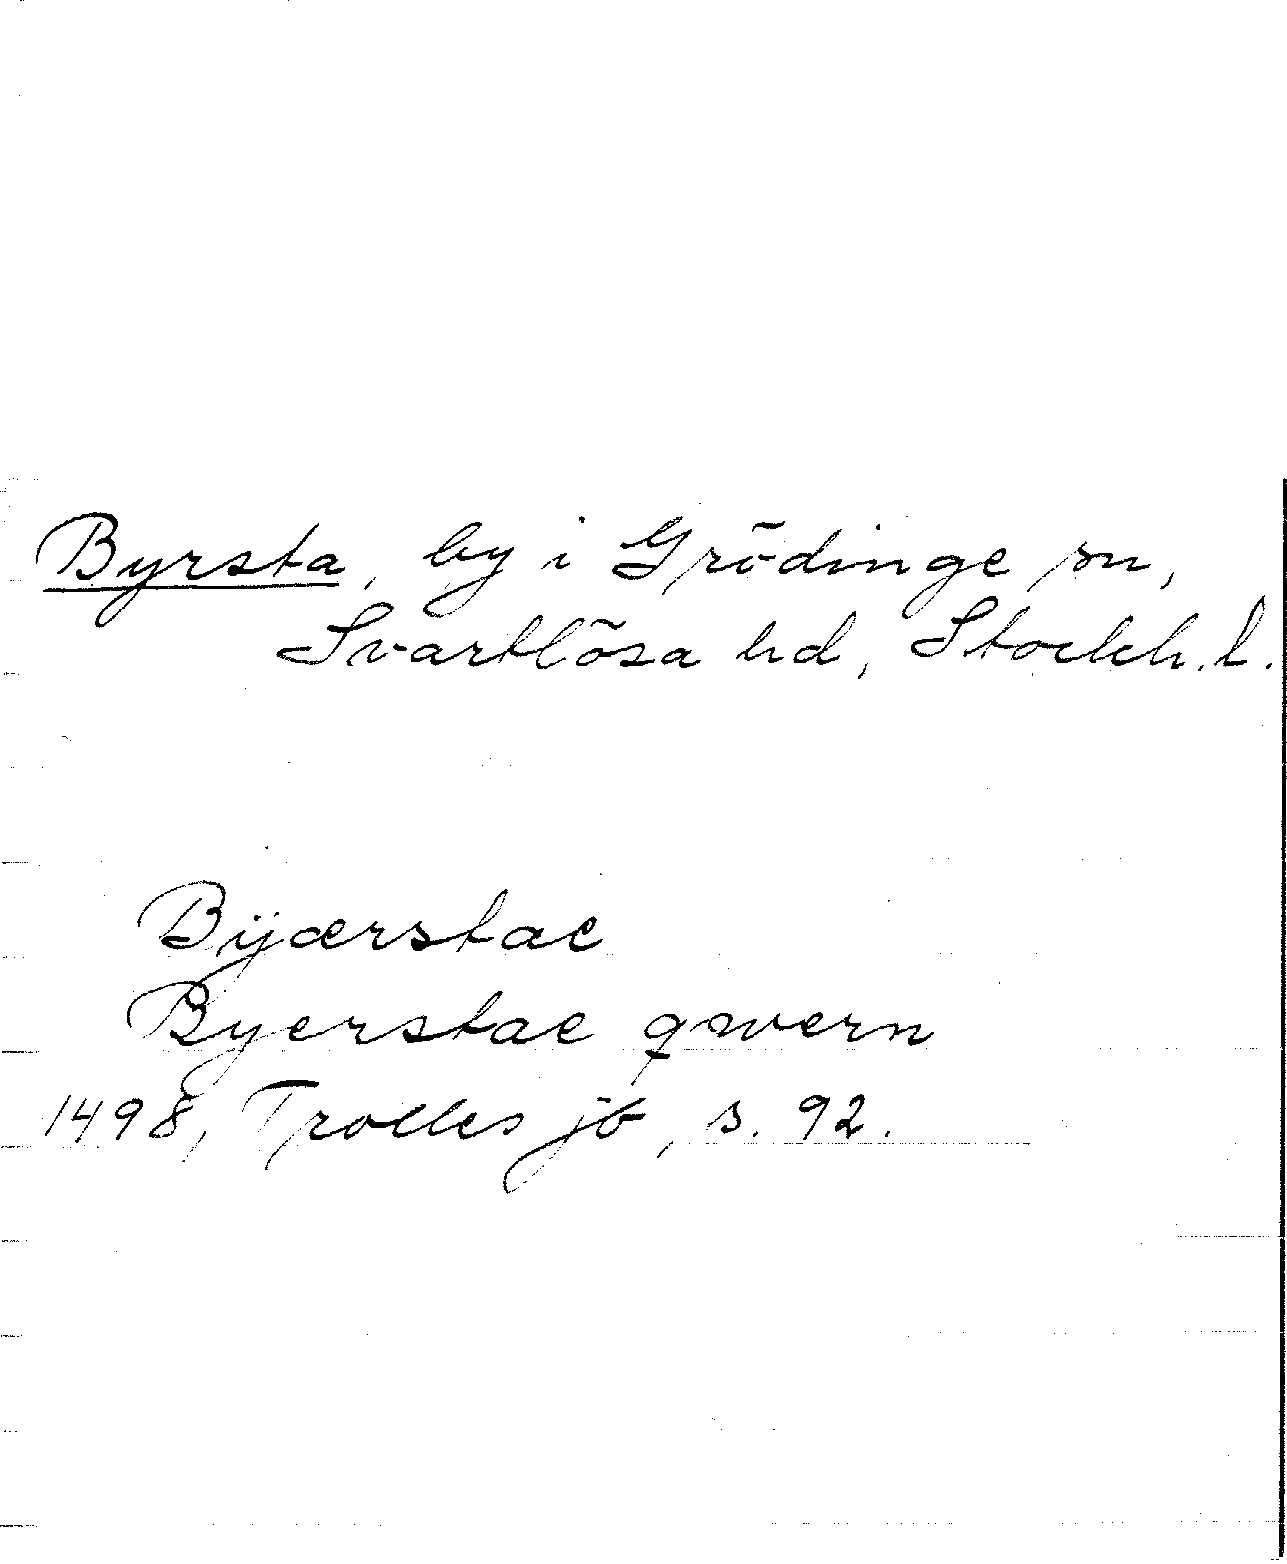 Byrsta, by i Grödinge sn,
Svartlösa hd, Stockh. l.
Bÿærstae
Byerstae qwern
1498, Trolles jb, s. 92.